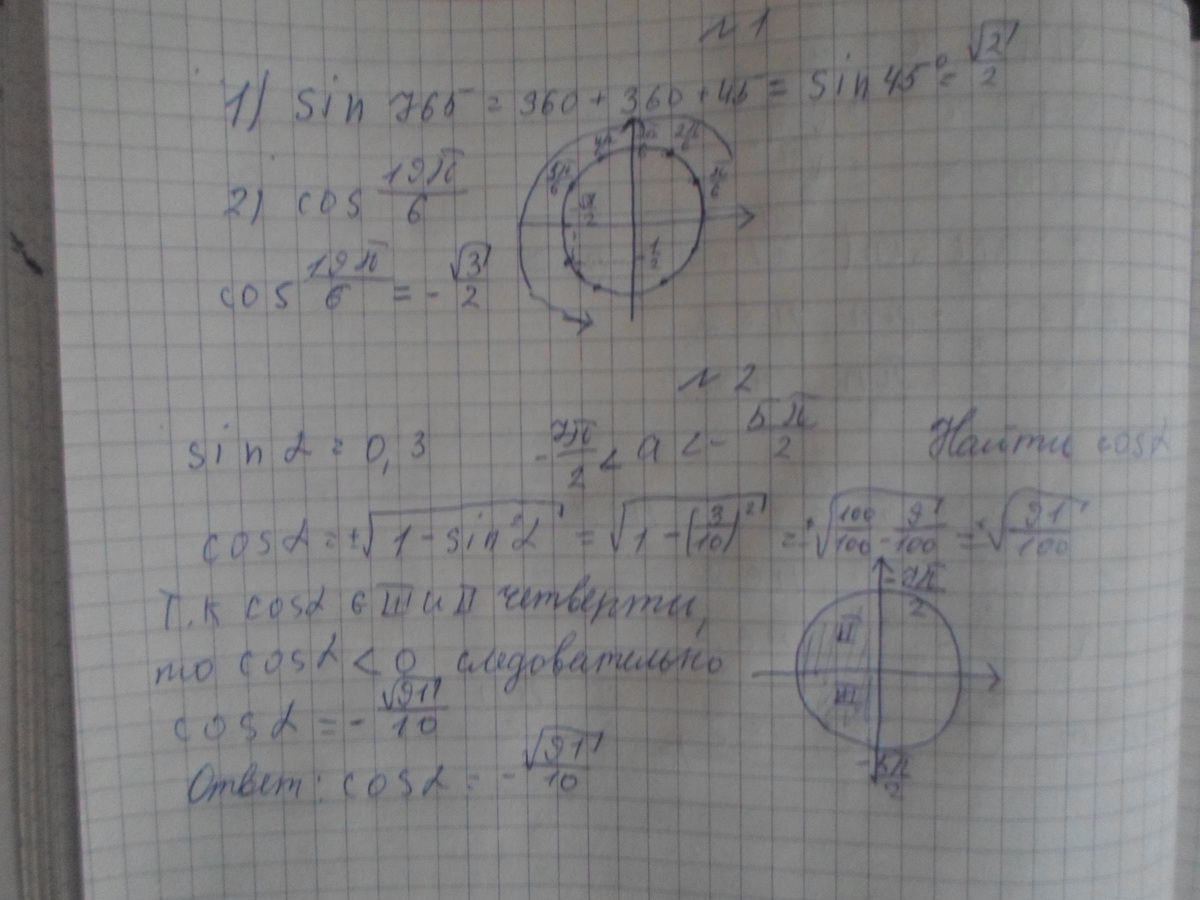 № 1
1) sin 765 = 360 + 360 + 45 = sin 45° = √2/2
2) cos 19π/6
cos 19π/6 = - √3/2
1/2
№ 2
sin α = 0,3 -7π/2 < α < - 5π/2 Найти cosα
cosα = ±√(1 - sin²α) = √(1 - (3/10)²) = ±√(100/100 - 9/100) = ±√(91/100)
Т.к cosα в III и II четверти,
то cosα < 0 следовательно
cosα = - √91/10
Ответ: cosα = - √91/10
-7π/2
II
III
-5π/2